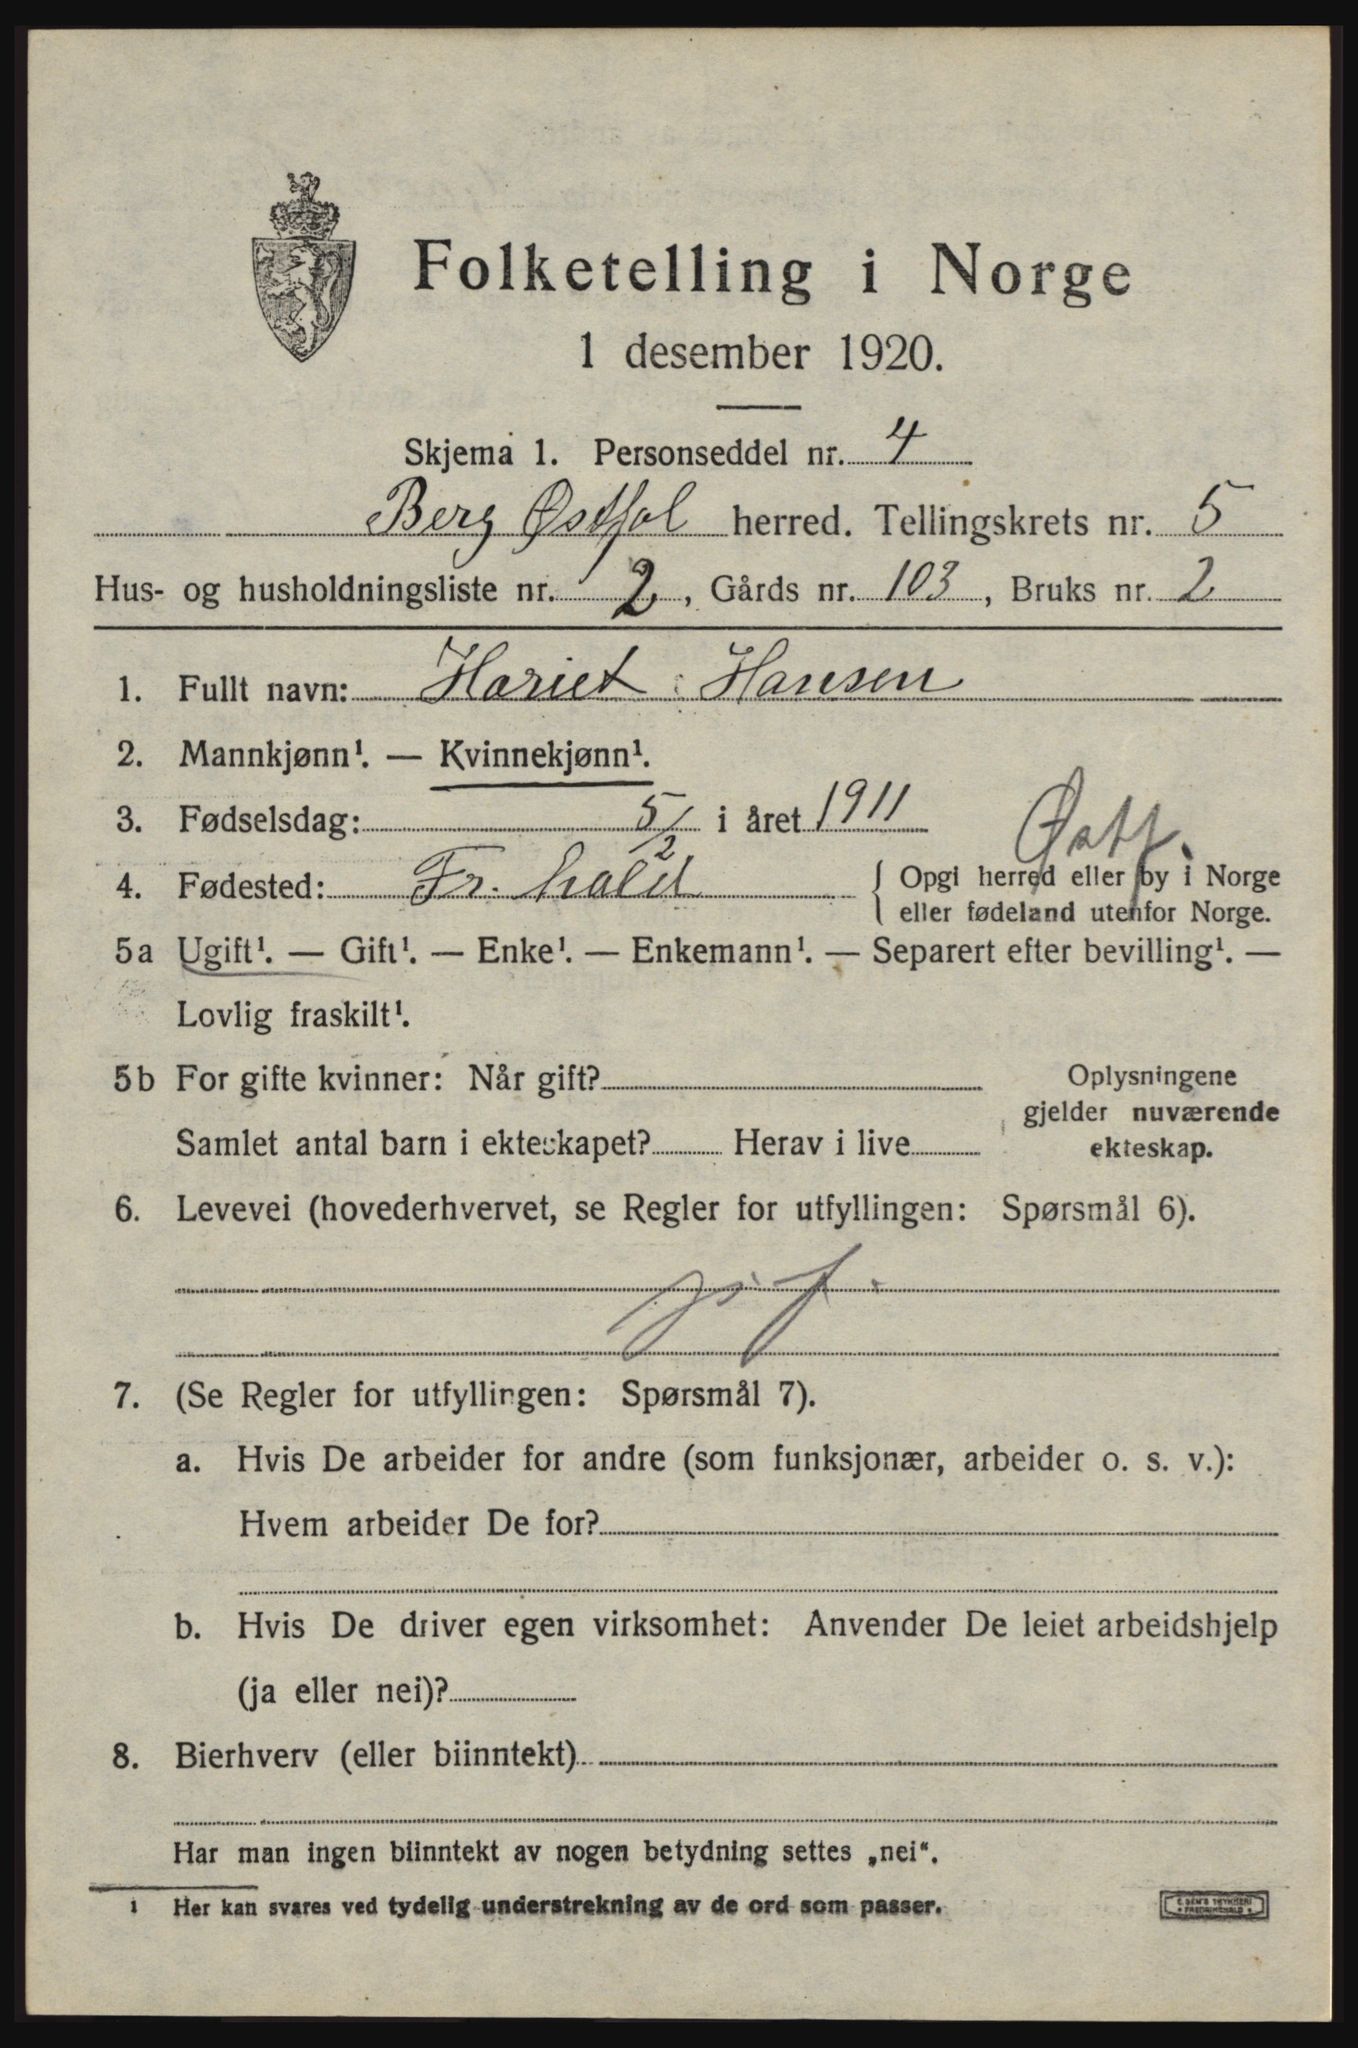 Folketelling i Norge
1 desember 1920.
Skjema 1. Personseddel nr. 4
Berg Østfol herred. Tellingskrets nr. 5
Hus- og husholdningsliste nr. 2, Gårds nr. 103, Bruks nr. 2
1. Fullt navn: Hariet Hansen
2. Mannkjønn¹. — Kvinnekjønn¹.
3. Fødselsdag: 5/2 i året 1911
Østf.
4. Fødested: Fr. hald { Opgi herred eller by i Norge
eller fødeland utenfor Norge.
5a Ugift¹. — Gift¹. — Enke¹. — Enkemann¹. — Separert efter bevilling¹. —
Lovlig fraskilt¹.
5b For gifte kvinner: Når gift? Oplysningene
gjelder nuværende
Samlet antal barn i ekteskapet? Herav i live ekteskap.
6. Levevei (hovederhvervet, se Regler for utfyllingen: Spørsmål 6).
7. (Se Regler for utfyllingen: Spørsmål 7).
a. Hvis De arbeider for andre (som funksjonær, arbeider o. s. v.):
Hvem arbeider De for?
b. Hvis De driver egen virksomhet: Anvender De leiet arbeidshjelp
(ja eller nei)?
8. Bierhverv (eller biinntekt)
Har man ingen biinntekt av nogen betydning settes „nei“.
1 Her kan svares ved tydelig understrekning av de ord som passer.
E. SEM'S TRYKKERI
FREDRIKSHALD